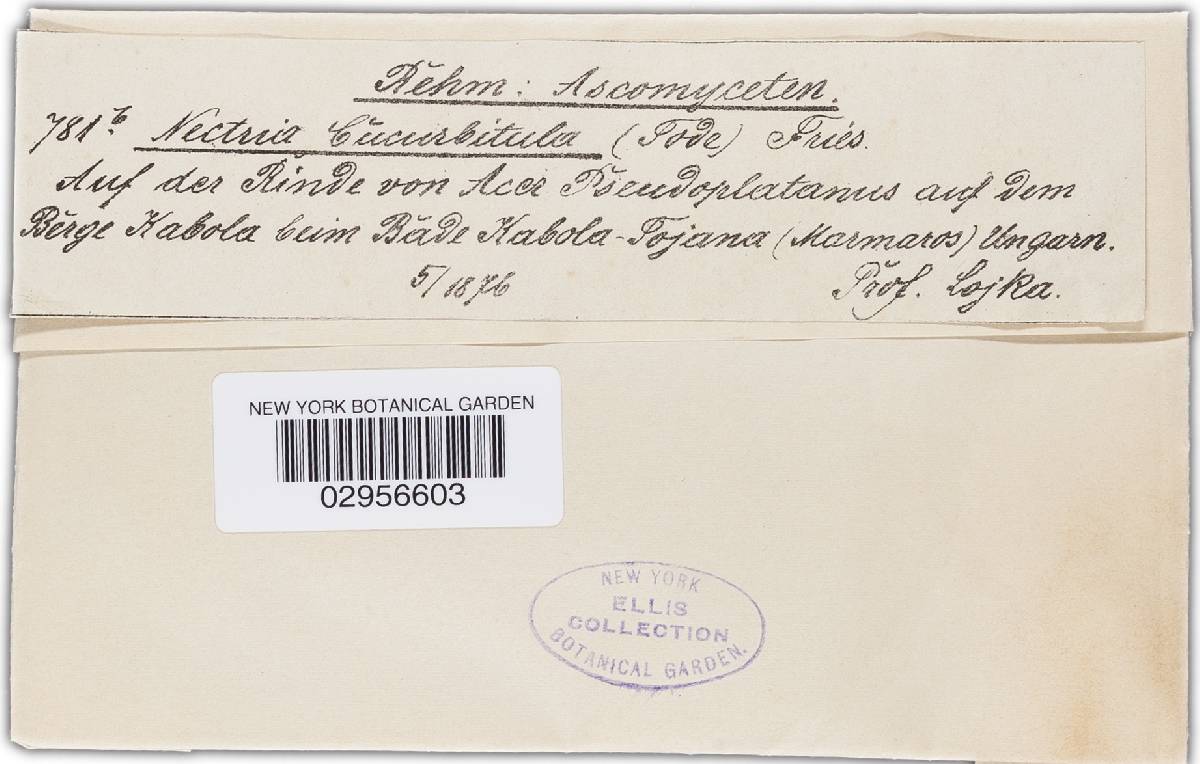 Rehm: Ascomyceten.
781b. Nectria Cucurbitula (Tode) Fries.
Auf der Rinde von Acer Pseudoplatanus auf dem
Berge Kabola beim Bade Kabola-Pojana (Marmaros) Ungarn.
5/1876 Prof. Lojka.
NEW YORK BOTANICAL GARDEN
02956603
NEW YORK
ELLIS
COLLECTION
BOTANICAL GARDEN.